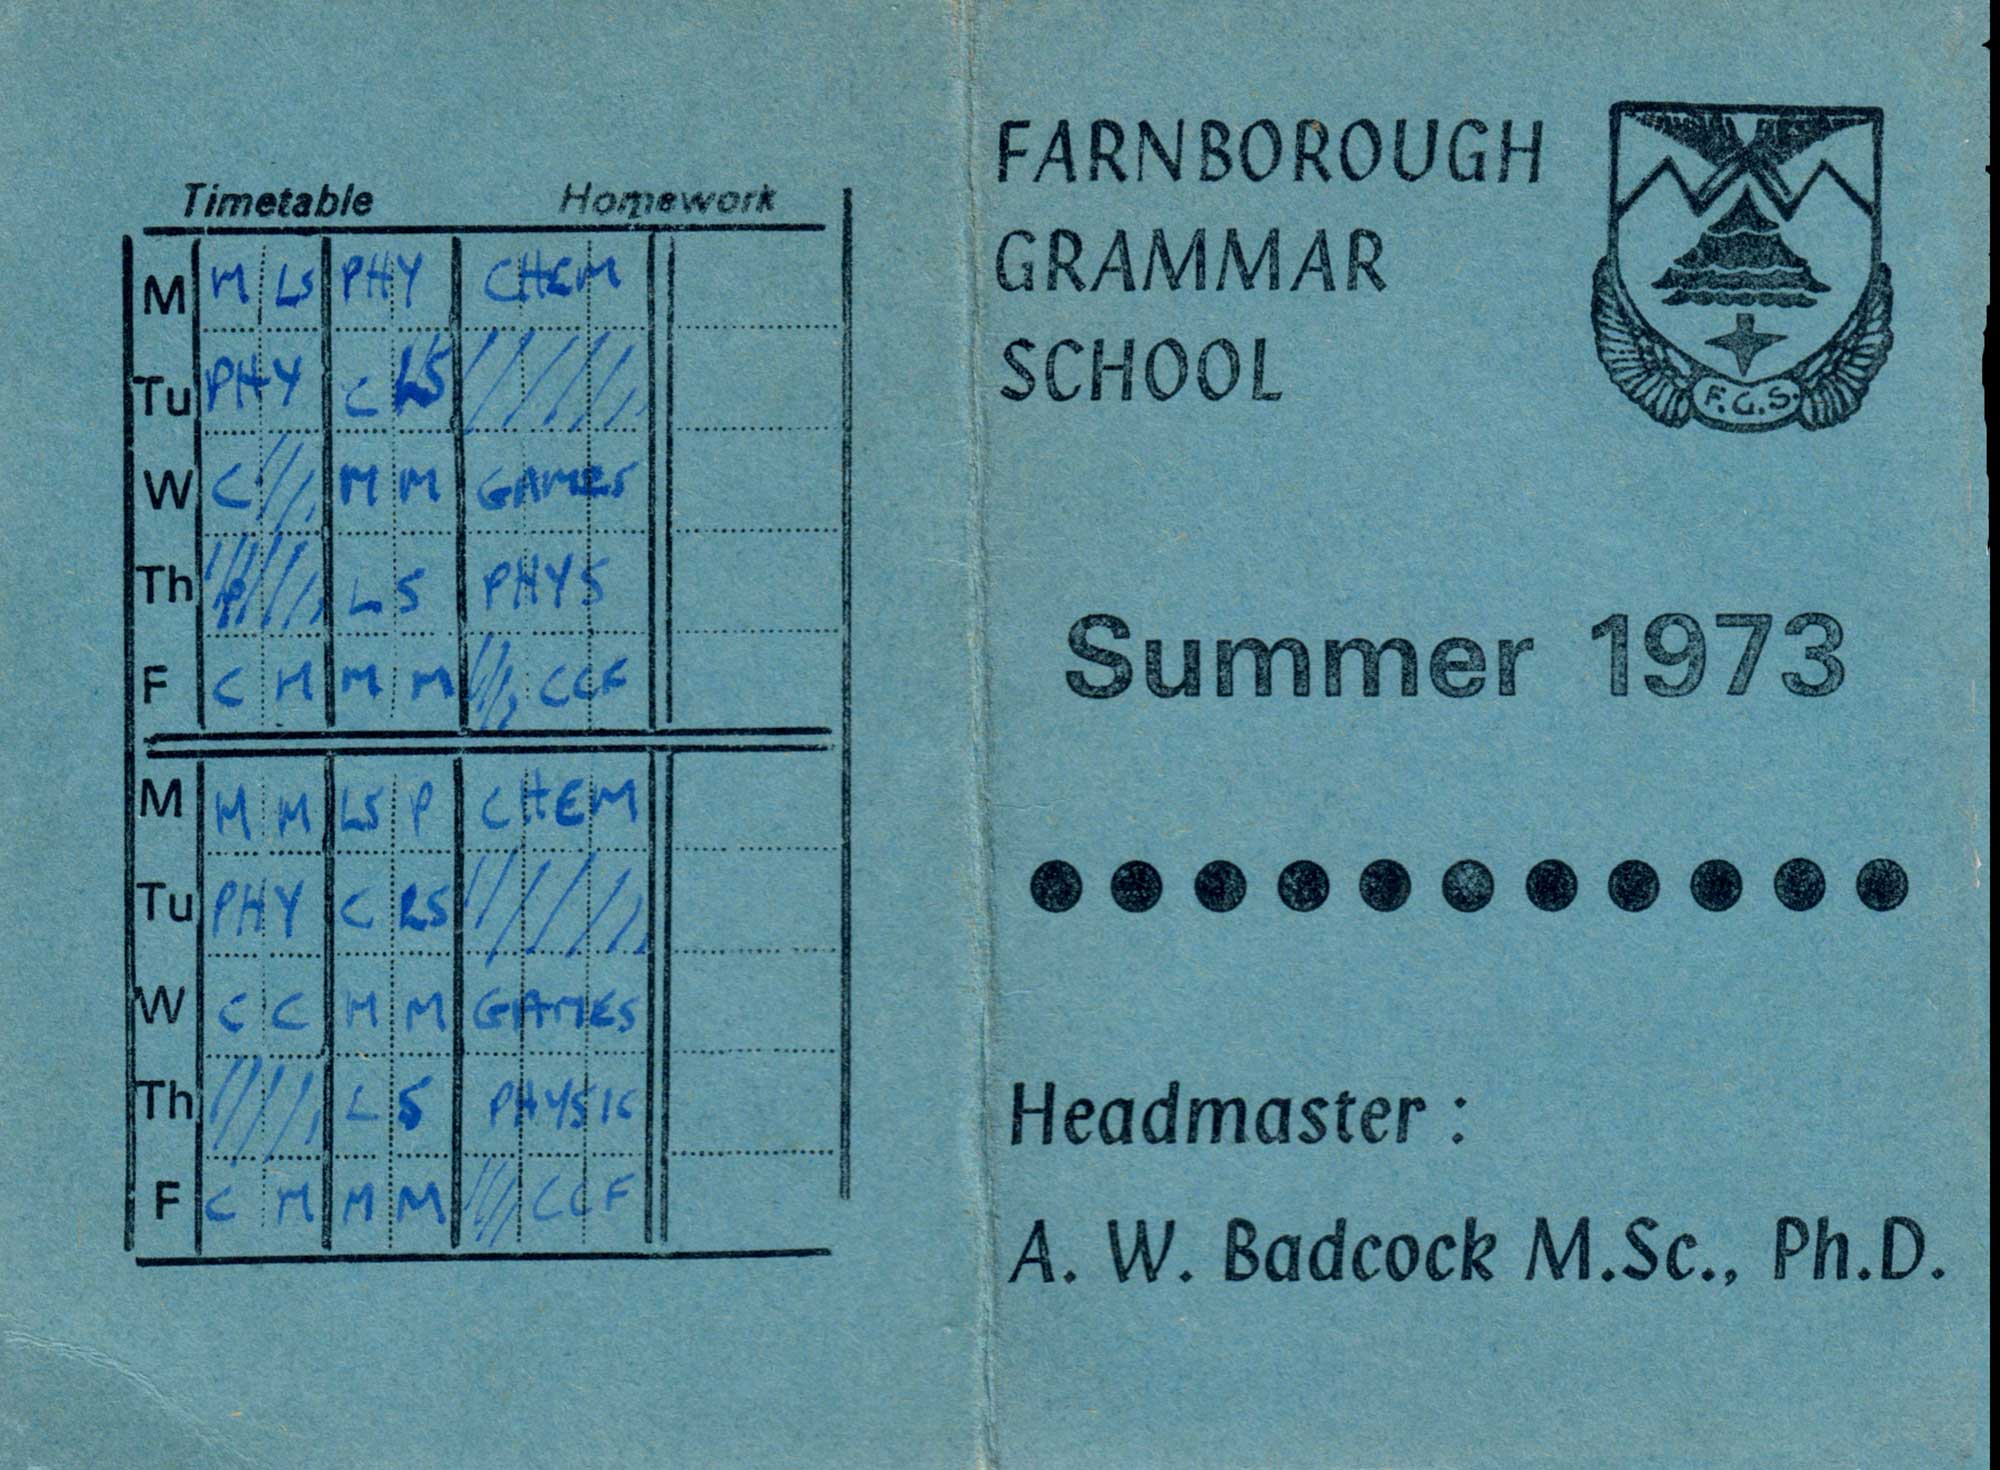 Timetable Homework
M M LS PHY CHEM
Tu PHY C LS
W C M M GAMES
Th P L S PHYS
F C M M M CCF
M M M LS P CHEM
Tu PHY C LS
W C C M M GAMES
Th L S PHYSIC
F C M M M CCF
FARNBOROUGH
GRAMMAR
SCHOOL
F.G.S.
Summer 1973
Headmaster :
A. W. Badcock M.Sc., Ph.D.